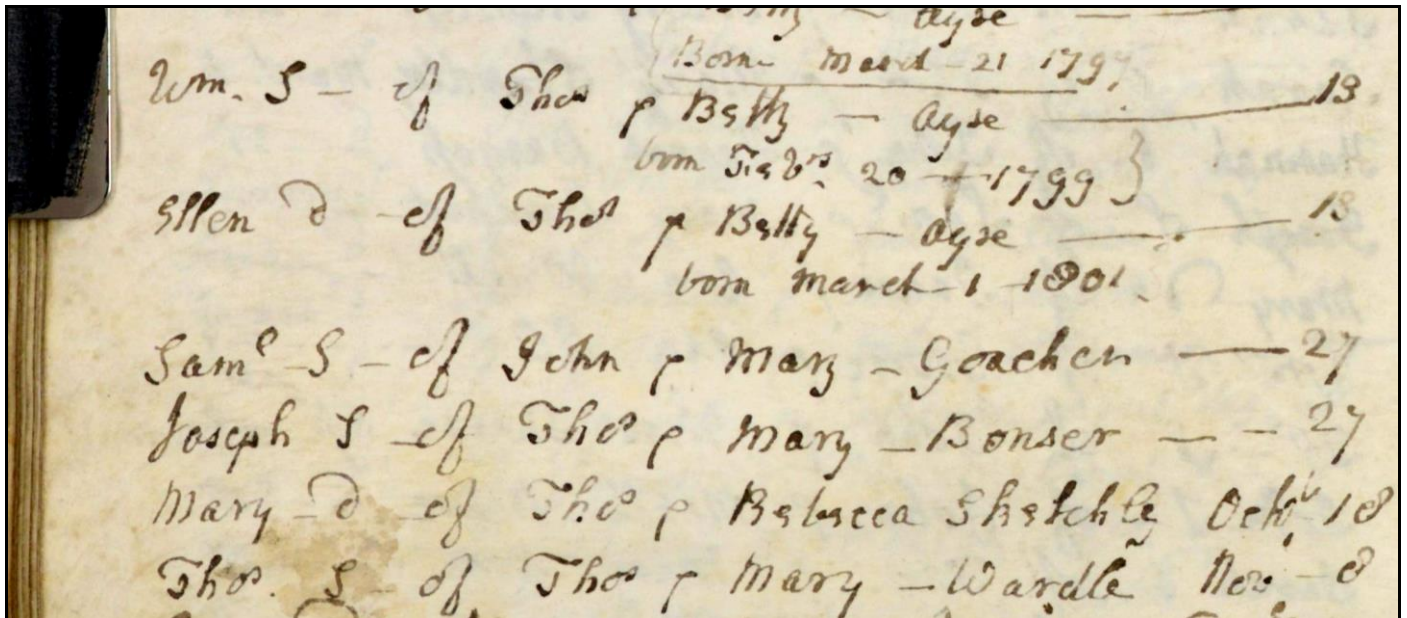 Betty — Ayre —
Born March 21 1797
Wm. S – of Thos & Betty — Ayre — 13
born Febry. 20 – 1799
Ellen D – of Thos & Betty – Ayre — 13
born March 1 – 1801
Saml S – of John & Mary – Goacher — 27
Joseph S – of Thos & Mary – Bonser — – 27
Mary – D – of Thos & Rebecca Sketchly Octr 18
Thos. S – of Thos & Mary – Wardle Nov. – 8